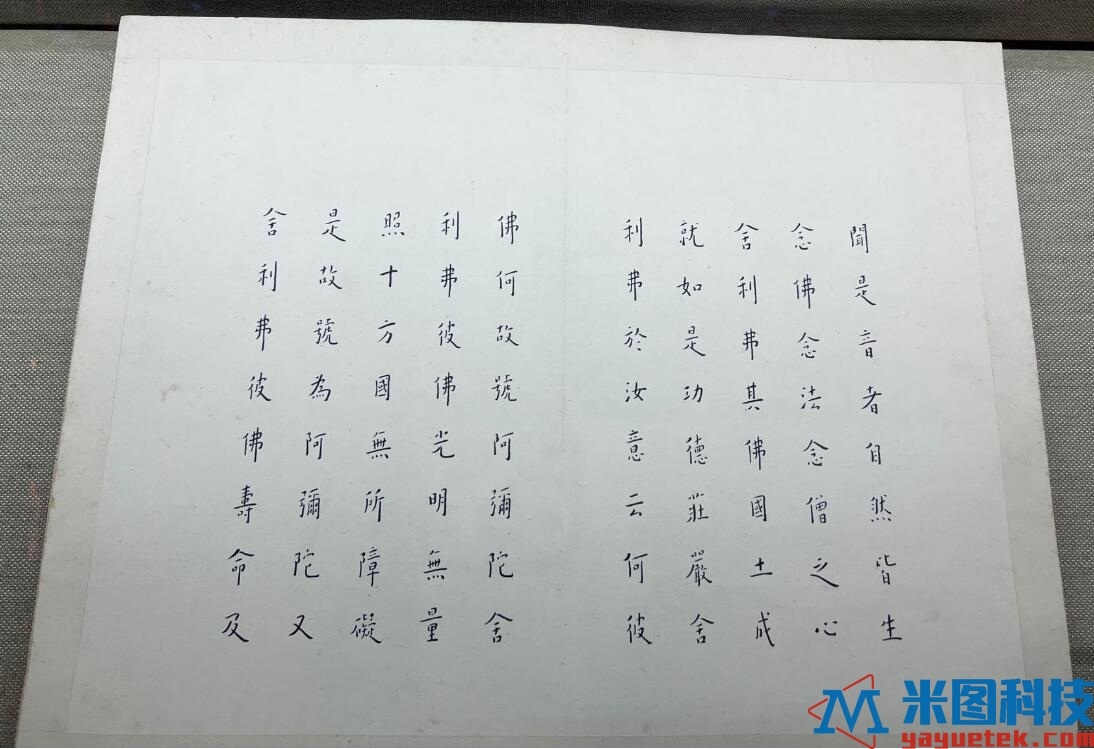 聞是音者自然皆生
念佛念法念僧之心
舍利弗其佛國土成
就如是功德莊嚴舍
利弗於汝意云何彼
佛何故號阿彌陀舍
利弗彼佛光明無量
照十方國無所障礙
是故號為阿彌陀又
舍利弗彼佛壽命及
米图科技
yayuetek.com